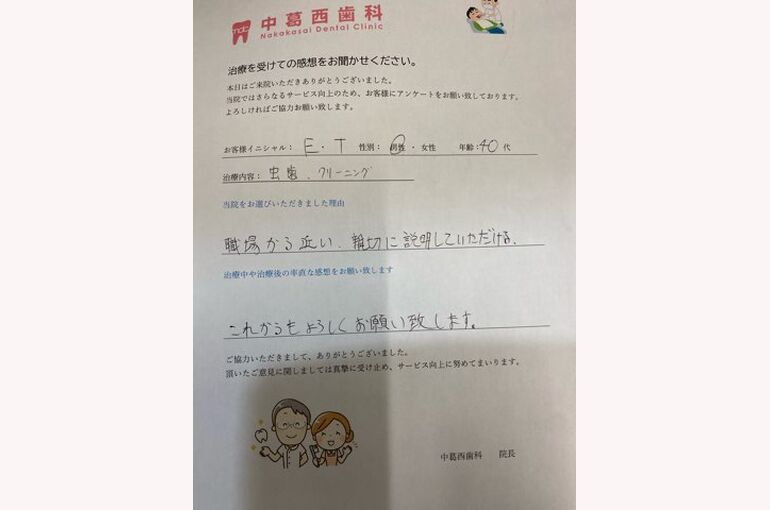 ndc 中葛西歯科
Nakakasai Dental Clinic
治療を受けての感想をお聞かせください。
本日はご来院いただきありがとうございました。
当院ではさらなるサービス向上のため、お客様にアンケートをお願い致しております。
よろしければご協力お願い致します。
お客様イニシャル： E・T 性別： 男性 ・ 女性 年齢：40 代
治療内容： 虫歯、クリーニング
当院をお選びいただきました理由
職場から近い、親切に説明していただける。
治療中や治療後の率直な感想をお願い致します
これからもよろしくお願い致します。
ご協力いただきまして、ありがとうございました。
頂いたご意見に関しましては真摯に受け止め、サービス向上に努めてまいります。
中葛西歯科 院長